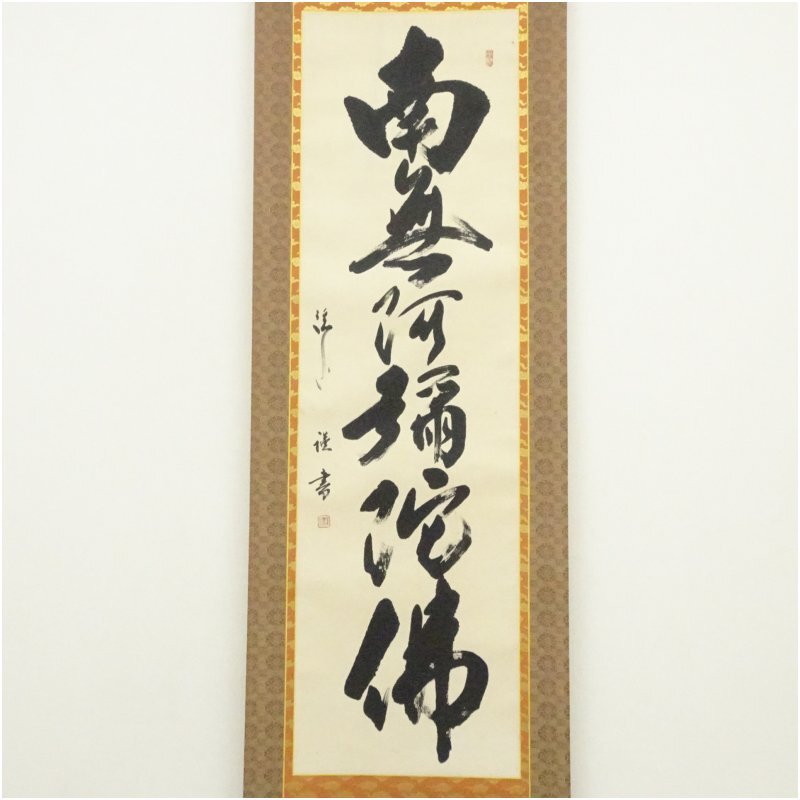 南無阿彌陀佛
謹書